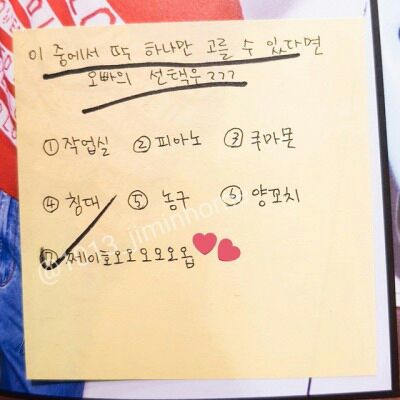 이 중에서 딱 하나만 고를 수 있다면
오빠의 선택은???
① 작업실 ② 피아노 ③ 쿠마몬
④ 침대 ⑤ 농구 ⑥ 양꼬치
⑦ 쩨이호오오오오오옵